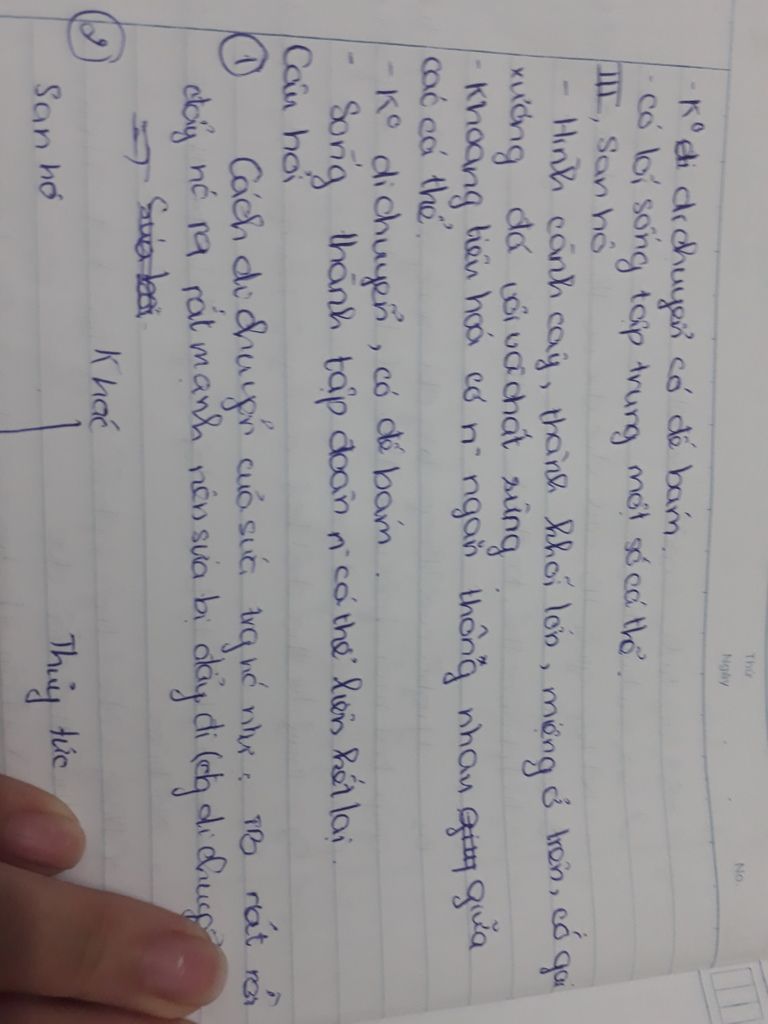 Thứ
Ngày
No.
- K° di chuyển có đế bám.
- Có lối sống tập trung một số cá thể.
III, San hô
- Hình cành cây, thành khối lớn, miệng ở trên, có gai
xương đá vôi và chất sừng
- Khoang tiêu hoá có n` ngăn thông nhau giữa
các cá thể.
- K° di chuyển, có đế bám.
- Sống thành tập đoàn n` cá thể liên kết lại.
Câu hỏi
① Cách di chuyển của sứa trg nc như: TB rút rồi
đẩy nc ra rất mạnh nên sứa bị đẩy đi (
=>
② Khác
San hô Thủy tức